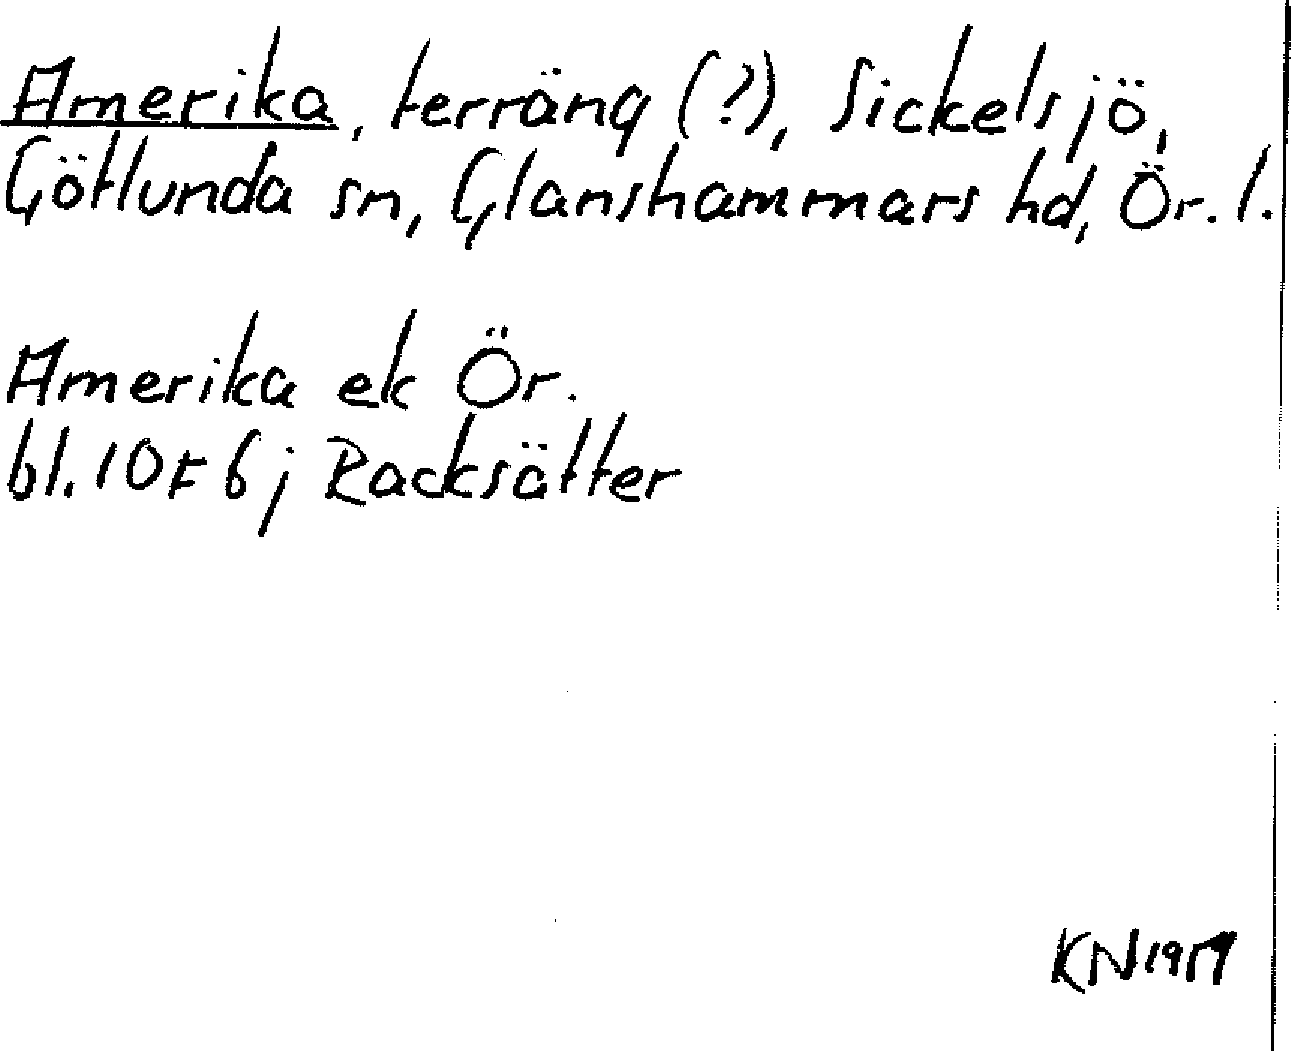 Amerika, terräng (?), Sickelsjö,
Götlunda sn, Glanshammars hd, Ör. l.
Amerika ek Ör.
bl. 10F6j Racksätter
KN